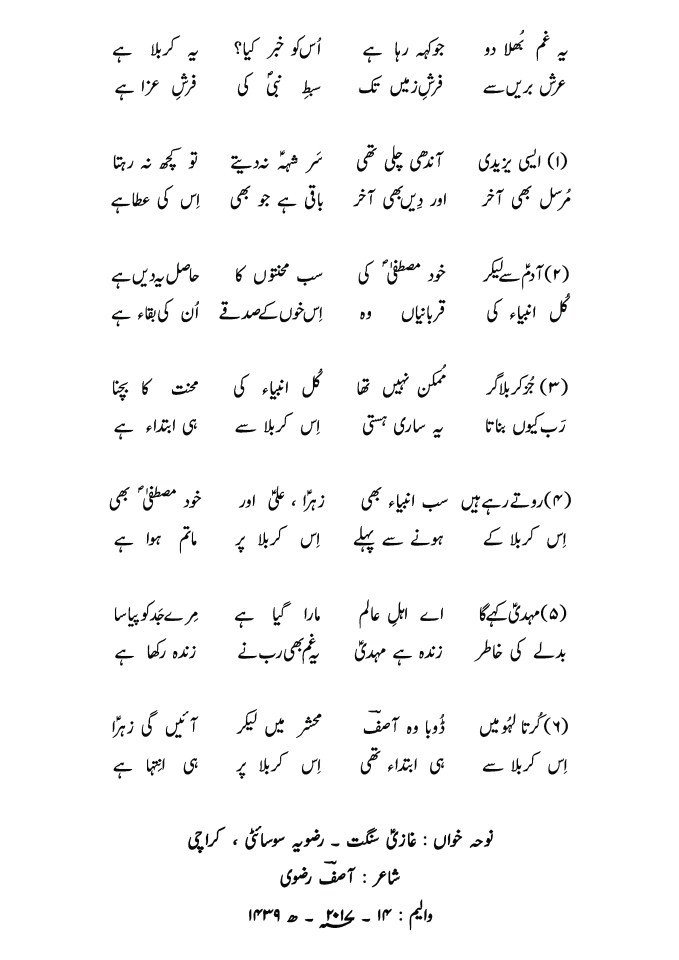 یہ غم بُھلا دو جو کہہ رہا ہے اُس کو خبر کیا؟ یہ کربلا ہے
عرش بریں سے فرشِ زمیں تک سبطِ نبیؐ کی فرشِ عزا ہے
(۱) ایسی یزیدی آندھی چلی تھی سَر شہہؑ نہ دیتے تو کچھ نہ رہتا
مُرسل بھی آخر اور دِیں بھی آخر باقی ہے جو بھی اِس کی عطا ہے
(۲) آدمؑ سے لیکر خود مصطفیٰؐ کی سب محنتوں کا حاصل یہ دیں ہے
کُل انبیاء کی قربانیاں وہ اِس خوں کے صدقے اُن کی بقاء ہے
(۳) جُز کربلا گر مُمکن نہیں تھا کُل انبیاء کی محنت کا بچنا
رَب کیوں بناتا یہ ساری ہستی اِس کربلا سے ہی ابتداء ہے
(۴) روتے رہے ہیں سب انبیاء بھی زہراؑ ، علیؑ اور خود مصطفیٰؐ بھی
اِس کربلا کے ہونے سے پہلے اِس کربلا پر ماتم ہوا ہے
(۵) مہدیؑ کہے گا اے اہلِ عالم مارا گیا ہے مِرے جَد کو پیاسا
بدلے کی خاطر زندہ ہے مہدیؑ یہ غم بھی رب نے زندہ رکھا ہے
(۶) کُرتا لہُو میں ڈوبا وہ آصفؔ محشر میں لیکر آئیں گی زہراؑ
اِس کربلا سے ہی ابتداء تھی اِس کربلا پر ہی انتہا ہے
نوحہ خواں : غازیؑ سنگت ۔ رضویہ سوسائٹی ، کراچی
شاعر : آصفؔ رضوی
والیم : ۱۴ ۔ ۲۰۱۷؁ ۔ ھ ۱۴۳۹